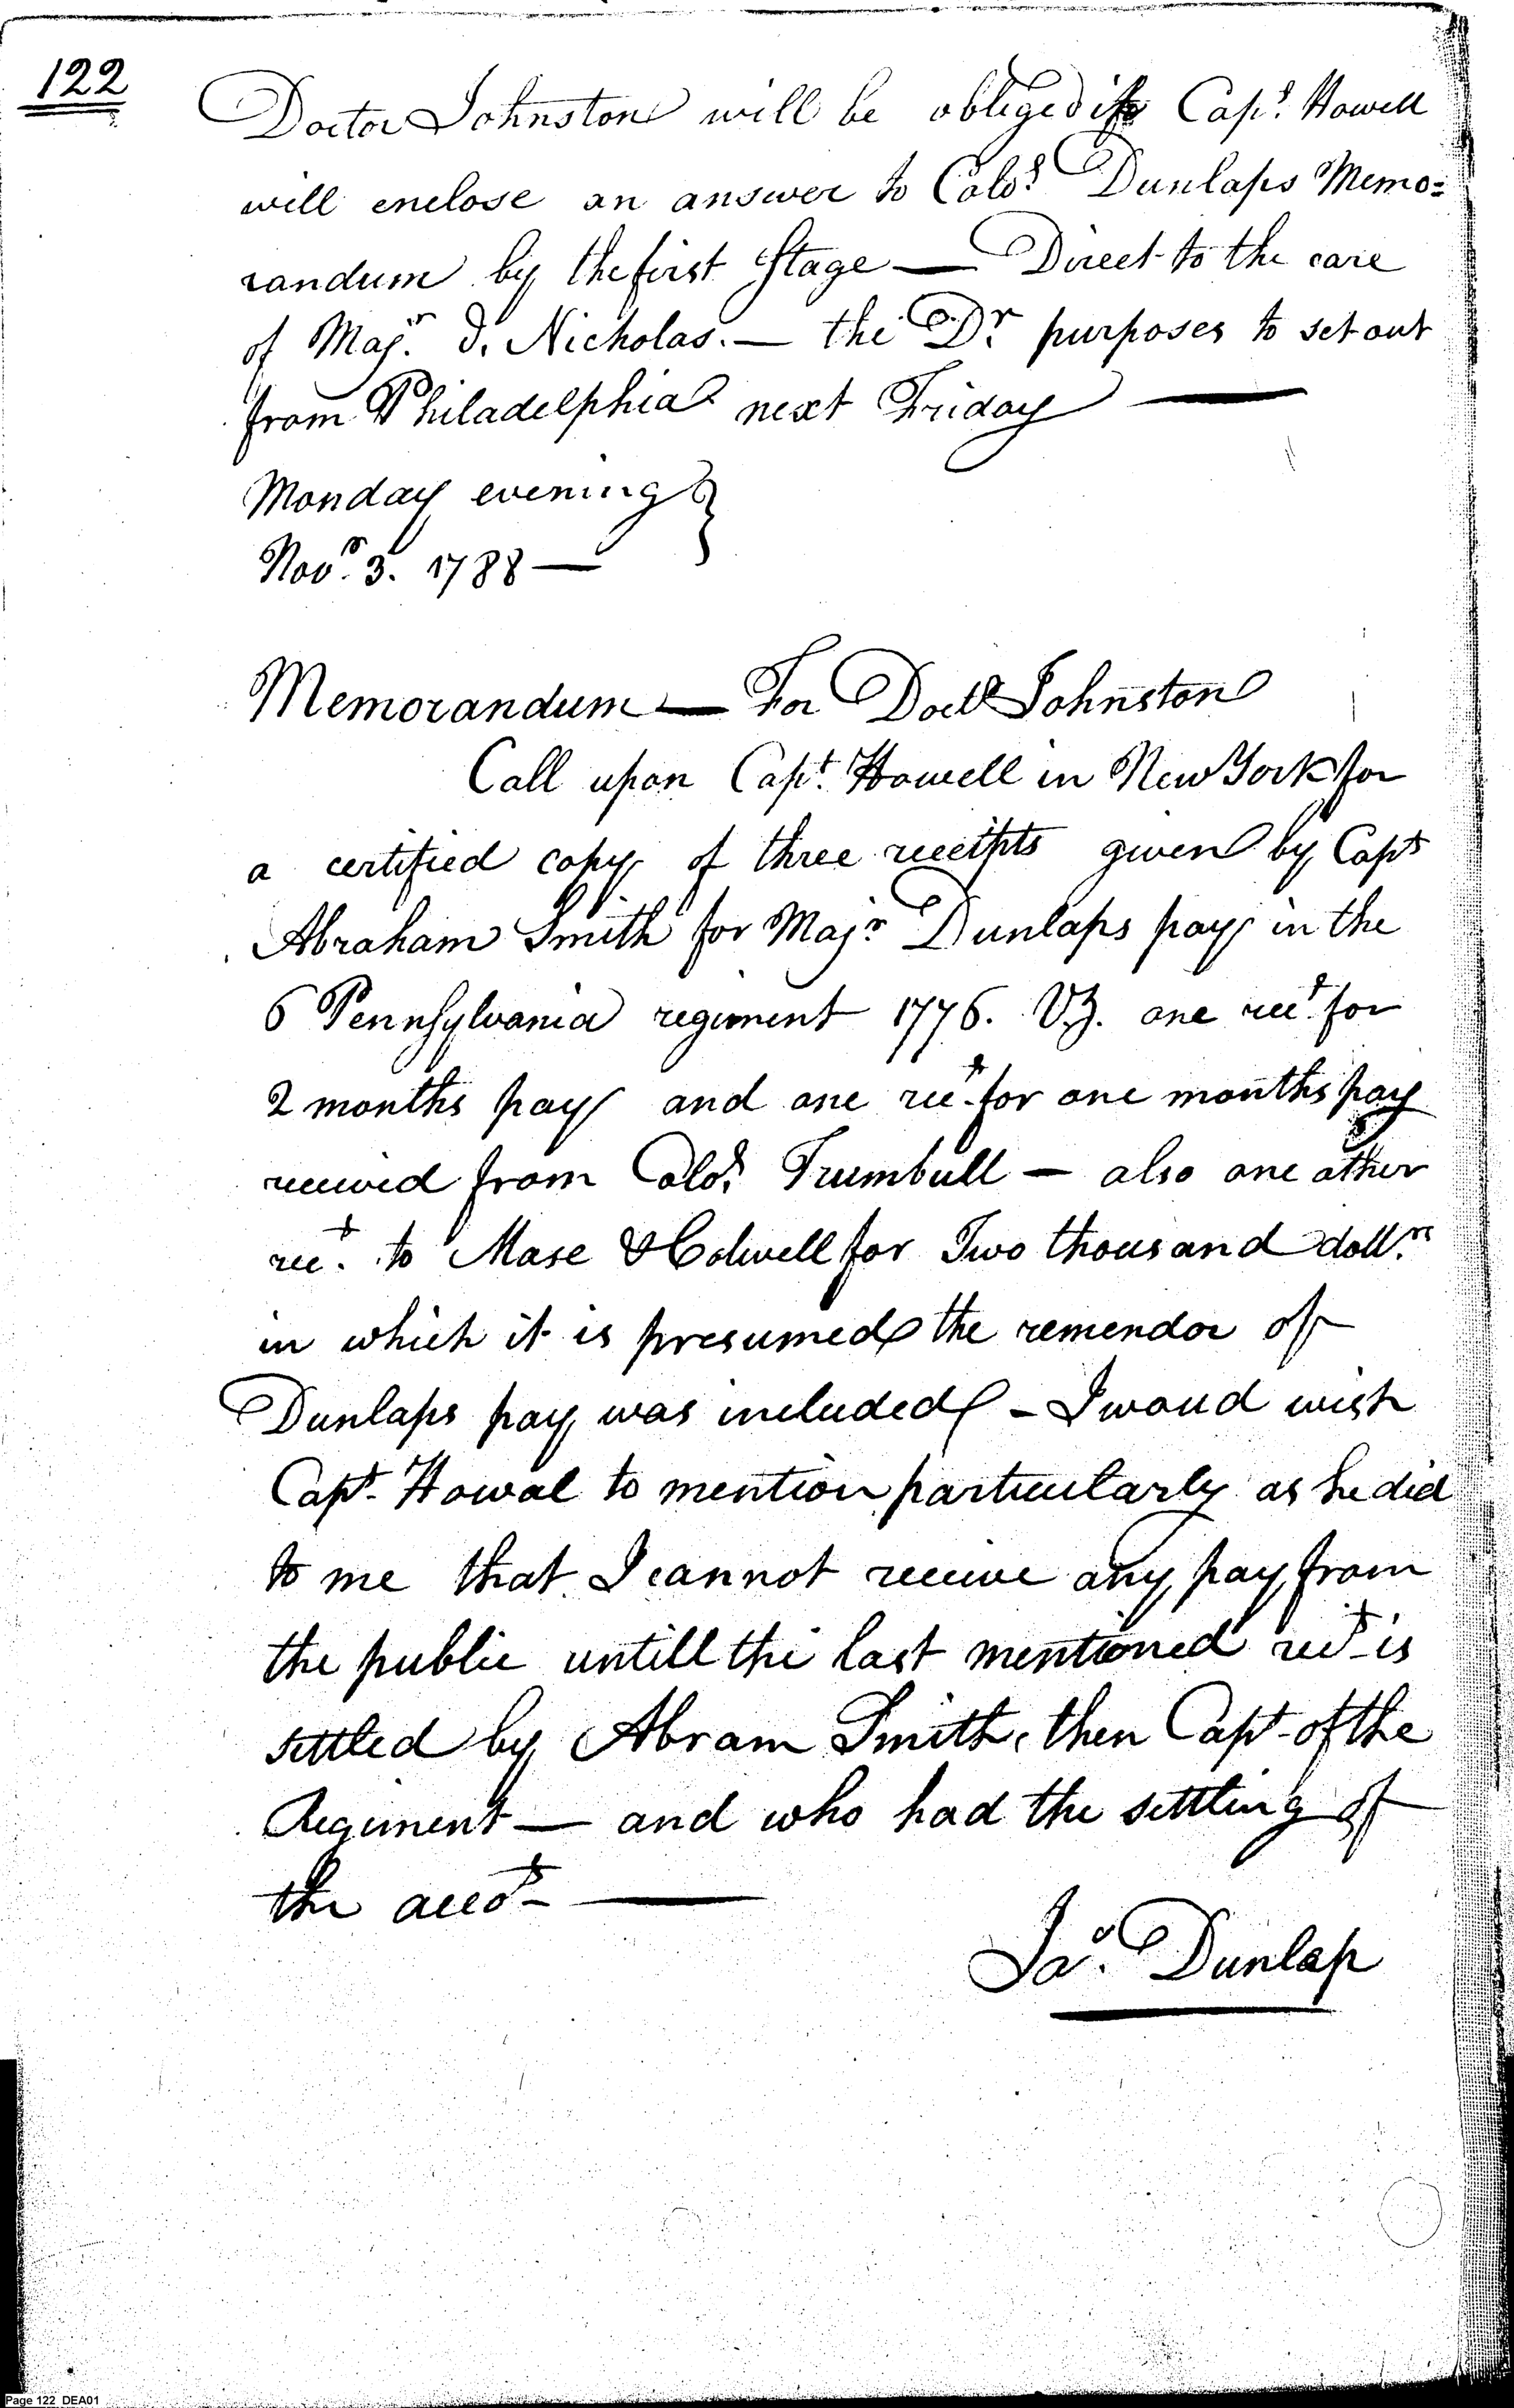 122
Doctor Johnston will be obliged if Capt. Howell
will enclose an answer to Colo. Dunlaps Memo=
randum by the first Stage — Direct to the care
of Majr. Nicholas. — the Dr. purposes to set out
from Philadelphia next Friday —
Monday evening }
Novr. 3. 1788 —
Memorandum — For Doctr Johnston
Call upon Capt. Howell in New York for
a certified copy of three receipts given by Capt
Abraham Smith for Majr Dunlaps pay in the
6 Pennsylvania regiment 1776. Vz. one rect. for
2 months pay and one rect. for one months pay
received from Colo. Trumbull — also one other
rect. to Mase & Colwell for Two thousand dollrs.
in which it is presumed the remendor of
Dunlaps pay was included — I woud wish
Capt. Howal to mention particularly as he did
to me that I cannot receive any pay from
the public untill the last mentioned rect is
settled by Abram Smith, then Capt of the
Regiment — and who had the settling of
the accots —
Jas. Dunlap
Page 122 DEA01